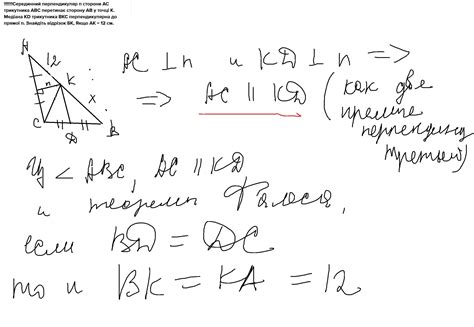 !!!!!!!Серединний перпендикуляр n сторони АС
трикутника АВС перетинає сторону АВ у точці К.
Медіана KD трикутника ВКС перпендикулярна до
прямої n. Знайдіть відрізок БК, якщо АК = 12 см.
A
12
n
K
x
C
D
B
AC ⊥ n и KD ⊥ n =>
=> AC || KD (как две
прямые
перпендик
третьей)
Из < ABC, AC || KD
и теоремы Фалеса,
если BD = DC
то и BK = KA = 12